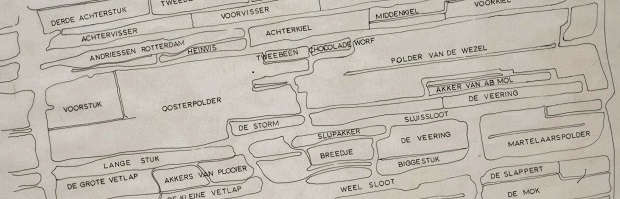 DERDE ACHTERSTUK
TWEEDE
VOORVISSER
ACHTERVISSER
ACHTERKIEL
MIDDENKIEL
VOORKIEL
ANDRIESSEN ROTTERDAM
HEINVIS
TWEEBEEN
CHOCOLADE WORF
POLDER VAN DE WEZEL
VOORSTUK
OOSTERPOLDER
AKKER VAN AB MOL
DE VEERING
DE STORM
SLUISSLOOT
SLUPAKKER
DE VEERING
MARTELAARSPOLDER
LANGE STUK
BREEDJE
BIGGESTUK
DE GROTE VETLAP
AKKERS VAN PLOOIER
DE SLAPPERT
DE KLEINE VETLAP
WEEL SLOOT
DE MOK